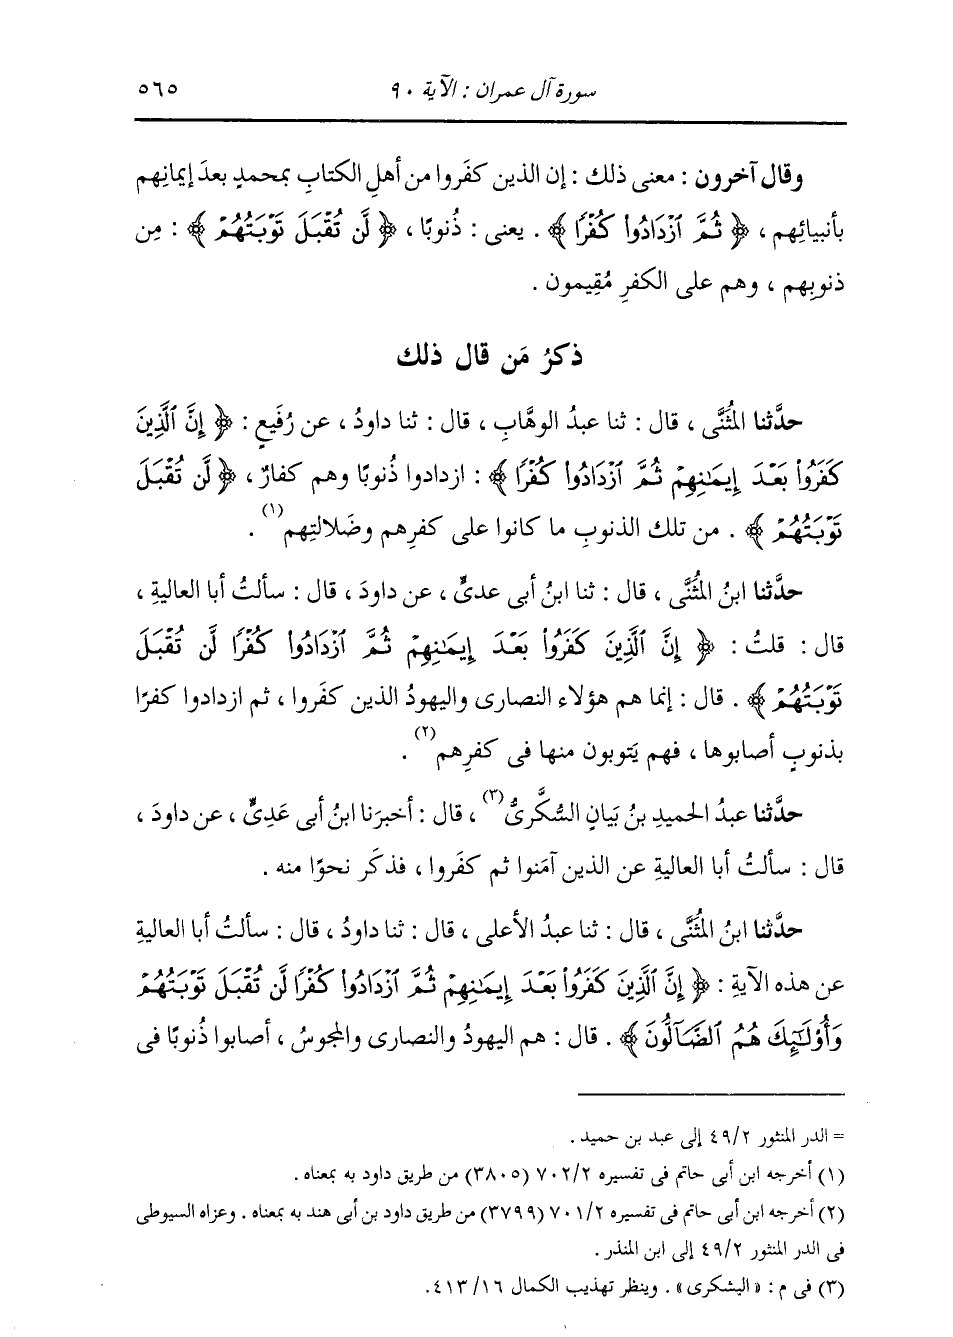 سورة آل عمران : الآية ٩٠ ٥٦٥
وقال آخرون : معنى ذلك : إن الذين كفَروا من أهلِ الكتابِ بمحمدٍ بعدَ إيمانِهم
بأنبيائِهم ، ﴿ ثُمَّ ٱزْدَادُوا۟ كُفْرًا ﴾ . يعنى : ذُنوبًا ، ﴿ لَّن تُقْبَلَ تَوْبَتُهُمْ ﴾ : مِن
ذنوبِهم ، وهم على الكفرِ مُقِيمون .
ذكرُ مَن قال ذلك
حدَّثنا المُثَنَّى ، قال : ثنا عبدُ الوهَّابِ ، قال : ثنا داودُ ، عن رُفَيعٍ : ﴿ إِنَّ ٱلَّذِينَ
كَفَرُوا۟ بَعْدَ إِيمَٰنِهِمْ ثُمَّ ٱزْدَادُوا۟ كُفْرًا ﴾ : ازدادوا ذُنوبًا وهم كفارٌ ، ﴿ لَّن تُقْبَلَ
تَوْبَتُهُمْ ﴾ . من تلك الذنوبِ ما كانوا على كفرِهم وضَلالتِهم(١) .
حدَّثنا ابنُ المُثَنَّى ، قال : ثنا ابنُ أبى عدىٍّ ، عن داودَ ، قال : سألتُ أبا العاليةِ ،
قال : قلتُ : ﴿ إِنَّ ٱلَّذِينَ كَفَرُوا۟ بَعْدَ إِيمَٰنِهِمْ ثُمَّ ٱزْدَادُوا۟ كُفْرًا لَّن تُقْبَلَ
تَوْبَتُهُمْ ﴾ . قال : إنما هم هؤلاء النصارى واليهودُ الذين كفَروا ، ثم ازدادوا كفرًا
بذنوبٍ أصابوها ، فهم يَتوبون منها فى كفرِهم(٢) .
حدَّثنا عبدُ الحميدِ بنُ بَيانٍ السُّكَّرىُّ(٣) ، قال : أخبرَنا ابنُ أبى عَدِىٍّ ، عن داودَ ،
قال : سألتُ أبا العاليةِ عن الذين آمَنوا ثم كفَروا ، فذكَر نحوًا منه .
حدَّثنا ابنُ المُثَنَّى ، قال : ثنا عبدُ الأعلى ، قال : ثنا داودُ ، قال : سألتُ أبا العاليةِ
عن هذه الآيةِ : ﴿ إِنَّ ٱلَّذِينَ كَفَرُوا۟ بَعْدَ إِيمَٰنِهِمْ ثُمَّ ٱزْدَادُوا۟ كُفْرًا لَّن تُقْبَلَ تَوْبَتُهُمْ
وَأُو۟لَٰٓئِكَ هُمُ ٱلضَّآلُّونَ ﴾ . قال : هم اليهودُ والنصارى والمجوسُ ، أصابوا ذُنوبًا فى
= الدر المنثور ٤٩/٢ إلى عبد بن حميد .
(١) أخرجه ابن أبى حاتم فى تفسيره ٧٠٢/٢ (٣٨٠٥) من طريق داود به بمعناه .
(٢) أخرجه ابن أبى حاتم فى تفسيره ٧٠١/٢ (٣٧٩٩) من طريق داود بن أبى هند به بمعناه . وعزاه السيوطى
فى الدر المنثور ٤٩/٢ إلى ابن المنذر .
(٣) فى م : « اليشكرى » . وينظر تهذيب الكمال ٤١٣/١٦.